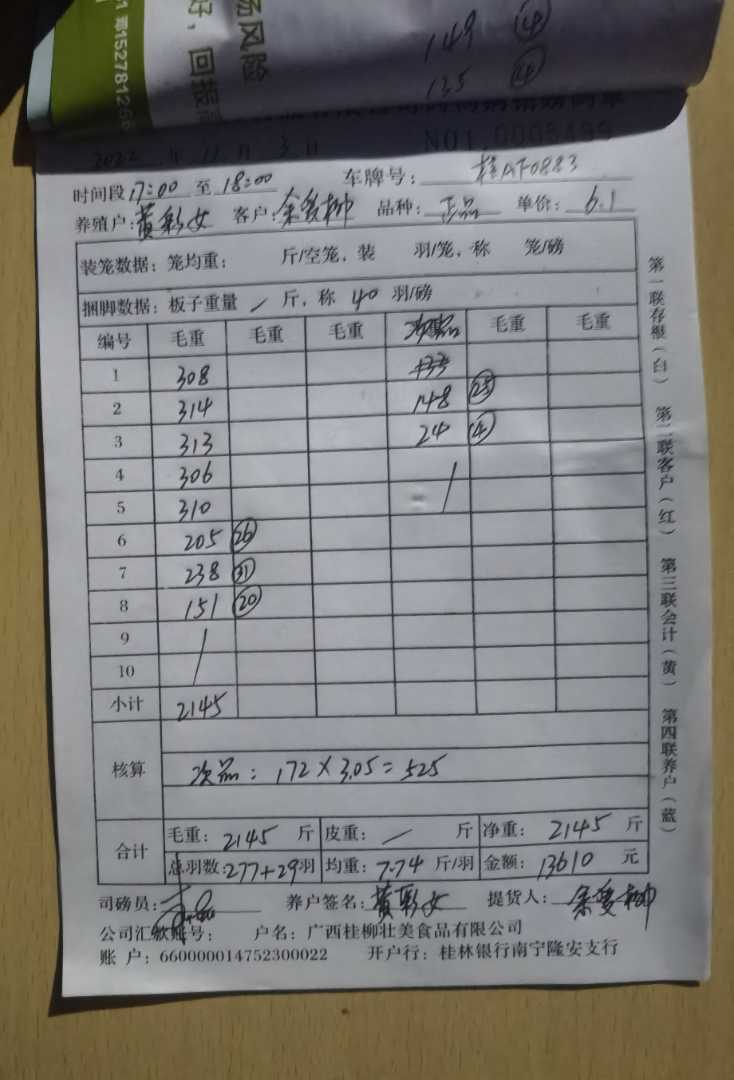 149 ⑭
135 ⑭
场风险
好，回报高
1 第1527812
NO1.0005499
2022 年 11 月 3 日
时间段 17:00 至 18:00 车牌号：桂AF0883
养殖户：黄彩女 客户：余爱柳 品种：正品 单价：6.1
装笼数据：笼均重： 斤/空笼，装 羽/笼，称 笼/磅
捆脚数据：板子重量 / 斤，称 40 羽/磅
编号 毛重 毛重 毛重 次品 毛重 毛重
1 308 133
2 314 148 ㉕
3 313 24 ④
4 306 /
5 310
6 205 ㉖
7 238 ㉛
8 151 ⑳
9 /
10
小计 2145
核算 次品：172×3.05=525
合计 毛重：2145 斤 皮重：/ 斤 净重：2145 斤
总羽数：277+29羽 均重：7.74 斤/羽 金额：13610 元
司磅员： 养户签名：黄彩女 提货人：余爱柳
公司汇款账号： 户名：广西桂柳壮美食品有限公司
账 户：660000014752300022 开户行：桂林银行南宁隆安支行
第一联存根（白） 第二联客户（红） 第三联会计（黄） 第四联养户（蓝）